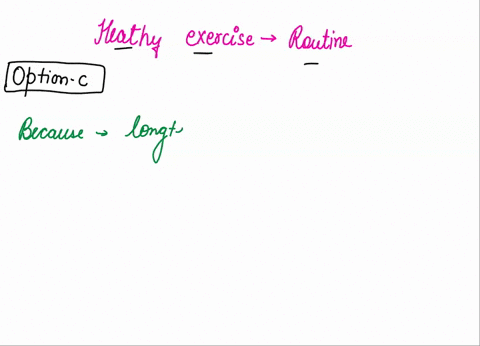 Heathy exercise → Routine
Option-c
Because → longt